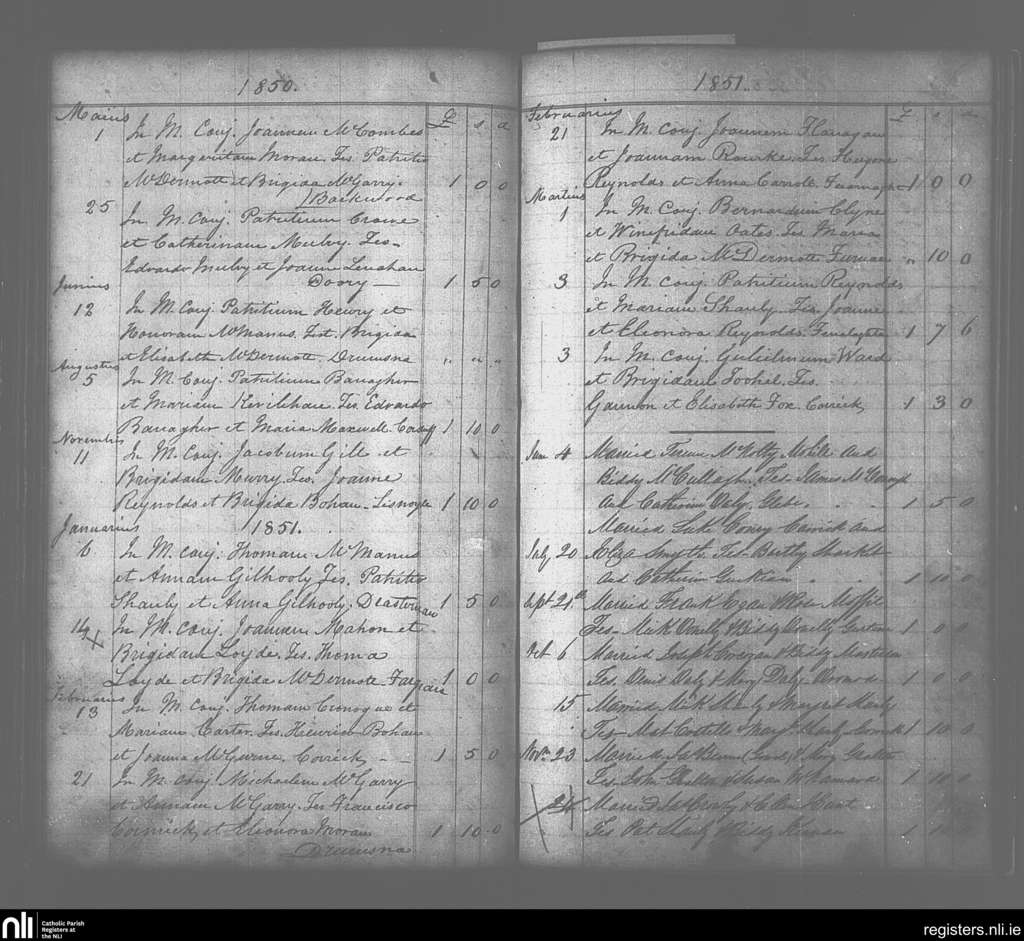 1850.
Maius
£ s d
1 In M. Conj. Joannem McCombes
et Margeritam Moran. Tes. Patritio
McDermott et Brigida McGarry. 1 0 0
Backwood
25 In M. Conj. Patritium Crowe
et Catherinam Mulvy. Tes.
Edvardo Mulvy et Joanne Lenahan
Doory 1 5 0
Junius
12 In M. Conj. Patritium Henry et
Honoram McManus. Test. Brigida
et Elisabeth McDermott. Drumsna " " "
Augustus
5 In M. Conj. Patritium Banagher
et Mariam Kevilhan. Tes. Edvardo
Banagher et Maria Maxwell. 1 10 0
Novembris
11 In M. Conj. Jacobum Gill et
Brigidam Murry. Tes. Joanne
Reynolds et Brigida Bohan. 1 10 0
Januarius 1851.
6 In M. Conj. Thomam McManus
et Annam Gilhooly. Tes. Patritio
Shanly et Anna Gilhooly. 1 5 0
14 In M. Conj. Joannem Mahon et
X
Brigidam Loyde. Tes. Thoma
Loyde et Brigida McDermott. 1 0 0
Februarius
13 In M. Conj. Thomam Cronogue et
Mariam Carter. Tes. Heinrico Bohan
et Joanna McGurne. Carrick 1 5 0
21 In M. Conj. Michaelem McGarry
et Annam McGarry. Tes. Francisco
et Eleonora Moran 1 10 0
Drumsna
1851.
Februarius
£ s d
21 In M. Conj. Joannem Flanagan
et Joannam Rourke. Tes. Hugone
Reynolds et Anna Carroll. 1 0 0
Martius
1 In M. Conj. Bernardum Clyne
et Winefridam Oates. Tes. Maria
et Brigida McDermott Furnan " 10 0
3 In M. Conj. Patritium Reynolds
et Mariam Shanly. Tes. Joanne
et Eleonora Reynolds. 1 7 6
3 In M. Conj. Gulielmum Ward
et Brigidam Toohil. Tes.
Gannon et Elisabeth Fox. Carrick 1 3 0
Jun 4 Married McNolty Mohill and
Biddy McCullagh. Tes. James
and Catherine Daly. 1 5 0
Married Luk Carrick and
July 20 Eliza Smyth Tes.
and Catherin 1 10 0
Sept 21st Married Frank Egan & Rose
Tes. Mick & Biddy 1 0 0
Oct 6 Married Joseph & Biddy
Tes. Daly & Mary Daly 1 0 0
15 Married Mick Shanly & Margret Shanly
Tes. Mat Costello & Mary Shanly 1 10 0
Novr 23 Married & Mary
Tes. John 1 10 0
24 Married & Ellen Hunt
Tes Pat Shanly & Biddy 1 10 0
nli
Catholic Parish
Registers at
the NLI
registers.nli.ie